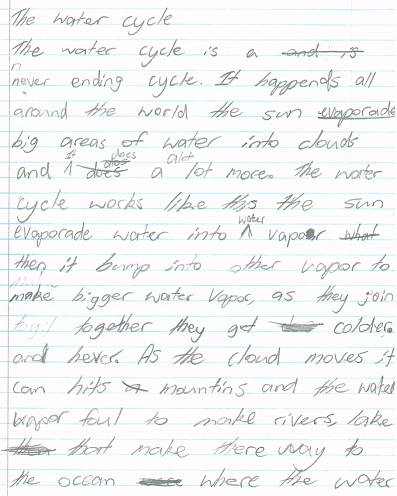 The water cycle
The water cycle is a and is
n
never ending cycle. It happends all
around the world the sun evaporade
big areas of water into clouds
and It does does a alot lot more. The water
cycle works like this the sun
evaporade water into water vapor what
then it bump into other vapor to
make bigger water vapor, as they join
together they get colder.
and hever. As the cloud moves it
can hits a mountins and the water
vapor foul to make rivers, lake
then that make there way to
the ocean where the water